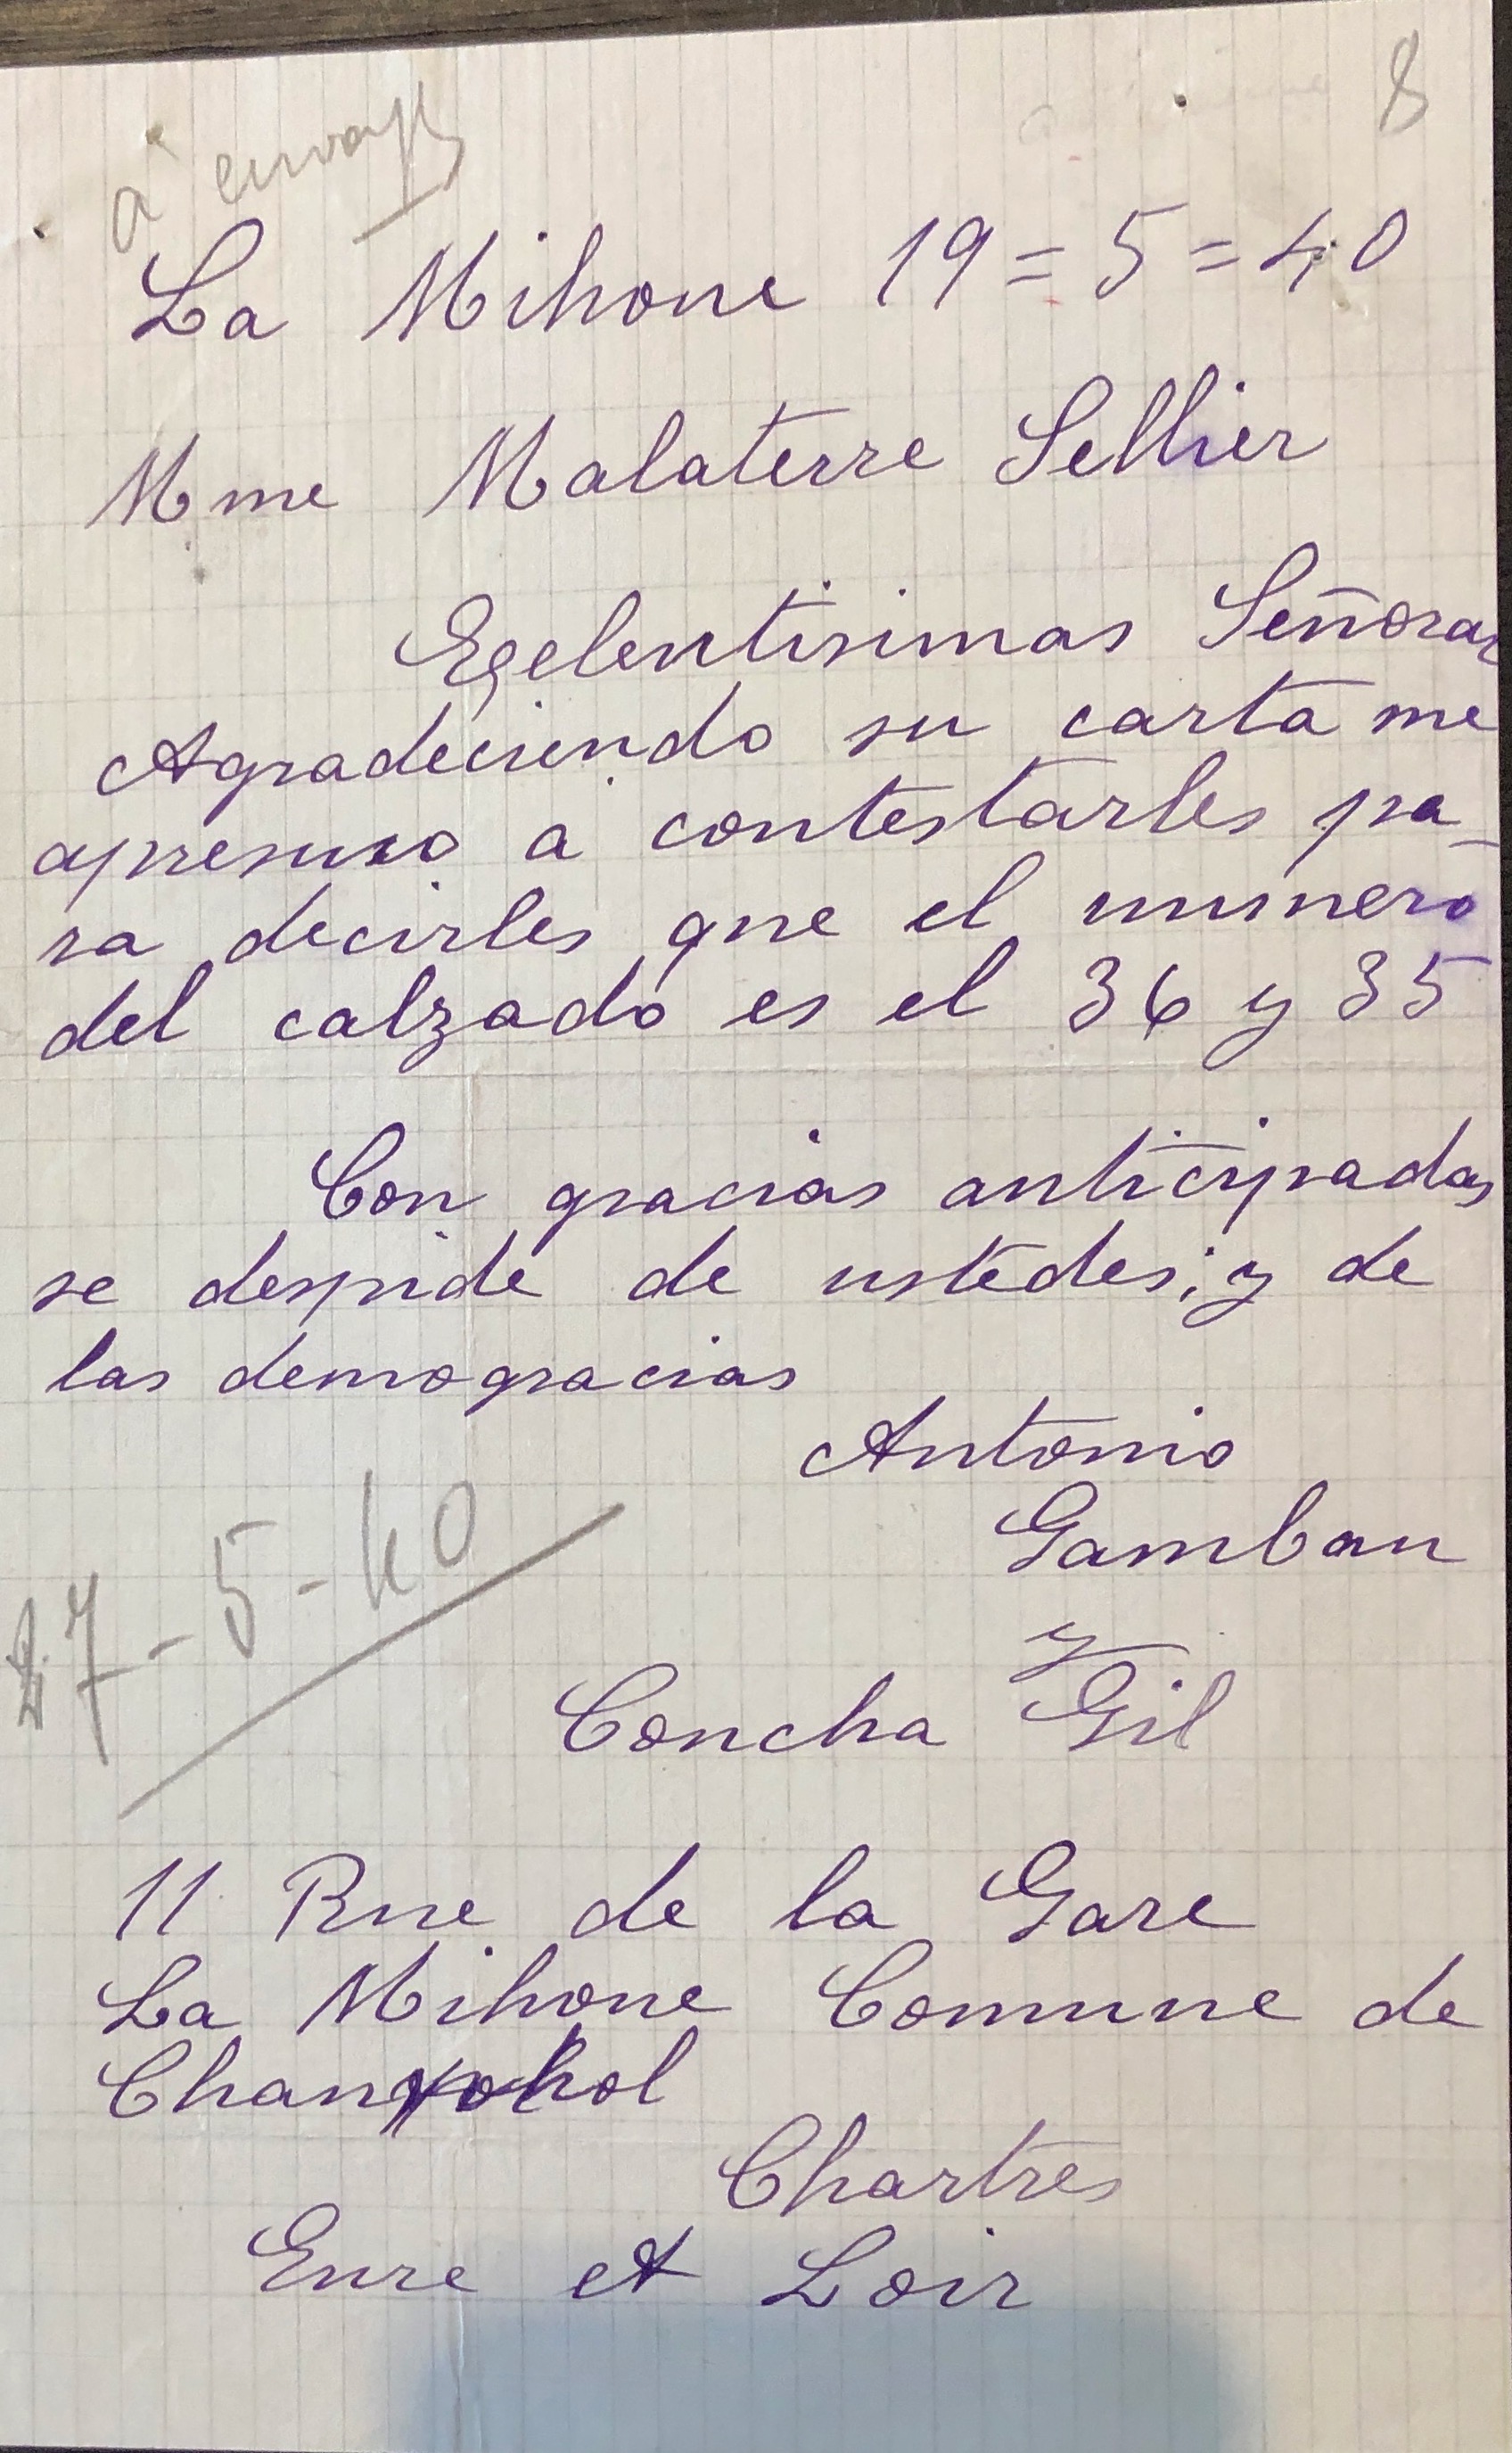 8
à envoyer
La Mihone 19=5=40
Mme Malaterre Sellier
Egelentisimas Señoras
Agradeciendo su carta me
apresuro a contestarles pa-
ra decirles que el numero
del calzado es el 36 y 35
Con gracias anticipadas
se despide de ustedes; y de
las demogracias
Antonio
Gambau
y
Concha Gil
27-5-40
11 Rue de la Gare
La Mihone Comune de
Chartres
Eure et Loir